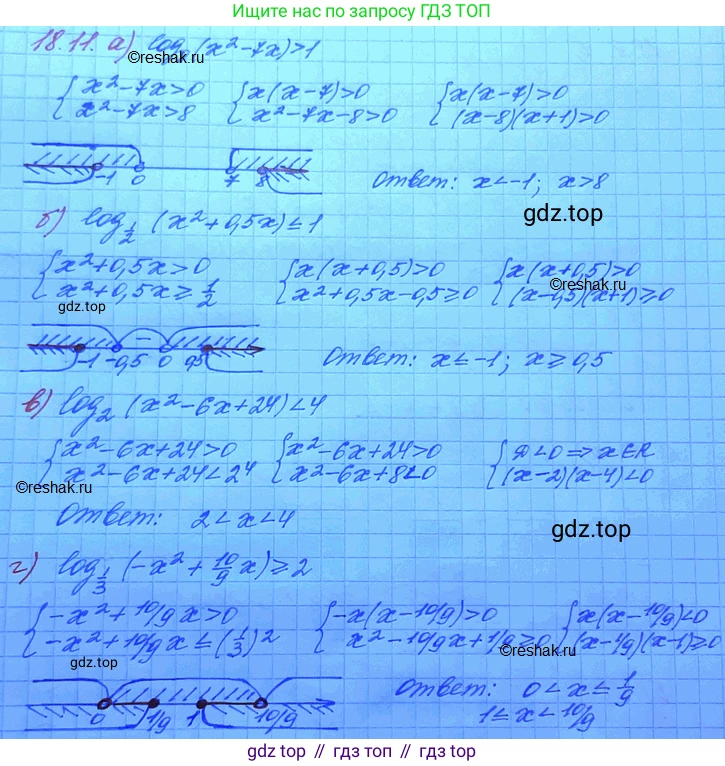 Ищите нас по запросу ГДЗ ТОП
18.11. а) log₈ (x²-7x)>1
©reshak.ru
{x²-7x>0 {x(x-7)>0 {x(x-7)>0
{x²-7x>8 {x²-7x-8>0 {(x-8)(x+1)>0
-1 0 7 8 Ответ: x<-1; x>8
gdz.top
б) log½ (x²+0,5x)≤1
{x²+0,5x>0 {x(x+0,5)>0 {x(x+0,5)>0
©reshak.ru
{x²+0,5x≥½ {x²+0,5x-0,5≥0 {(x-0,5)(x+1)≥0
gdz.top
-1 -0,5 0 0,5 Ответ: x≤-1; x≥0,5
в) log₂ (x²-6x+24)<4
{x²-6x+24>0 {x²-6x+24>0 {D<0=>x∈R
{x²-6x+24<2⁴ {x²-6x+8<0 {(x-2)(x-4)<0
©reshak.ru
Ответ: 2<x<4
gdz.top
г) log⅓ (-x²+10/9x)≥2
{-x²+10/9x>0 {-x(x-10/9)>0 {x(x-10/9)<0
{-x²+10/9x≤(⅓)² {x²-10/9x+1/9≥0 {(x-1/9)(x-1)≥0
gdz.top
©reshak.ru
0 1/9 1 10/9 Ответ: 0<x≤1/9
1≤x<10/9
gdz.top // гдз.топ // gdz.top